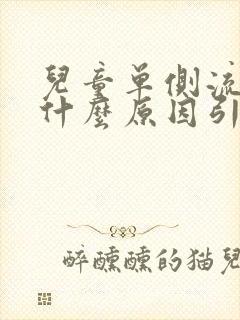 兒童单側流
什麼原因引
醉醺醺的猫兒